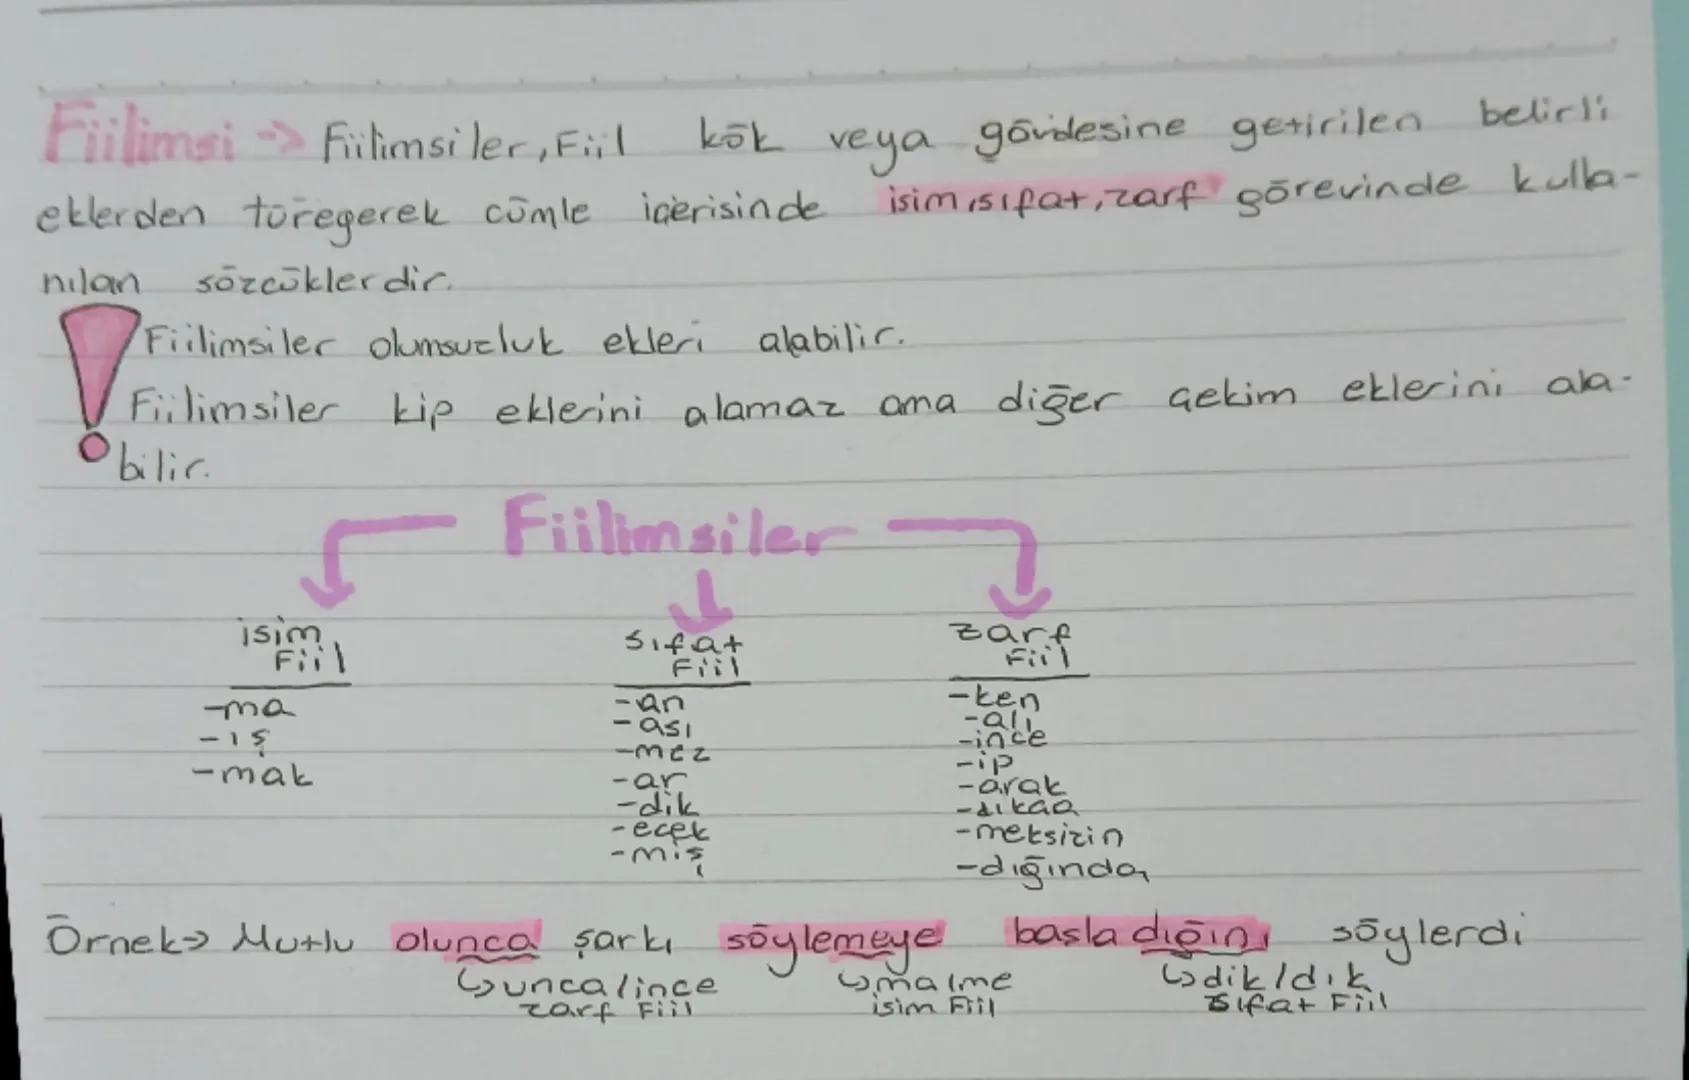 Fiilimsi → Fiilimsiler, Fiil kök veya gövdesine getirilen belirli
eklerden türeyerek cümle içerisinde isim, sıfat, zarf görevinde kulla-
nılan sözcüklerdir.
Fiilimsiler olumsuzluk ekleri alabilir.
Fiilimsiler kip eklerini alamaz ama diğer çekim eklerini ala-
bilir.
Fiilimsiler
isim Fiil
-ma
-ış
-mak
sıfat Fiil
-an
-ası
-mez
-ar
-dik
-ecek
-miş
zarf Fiil
-ken
-alı
-ince
-ip
-arak
-dıkça
-meksizin
-dığında
Örnek→ Mutlu olunca şarkı söylemeye başladığını söylerdi
↳unca/ince
zarf Fiil
↳ma/me
isim Fiil
↳dik/dık
sıfat Fiil